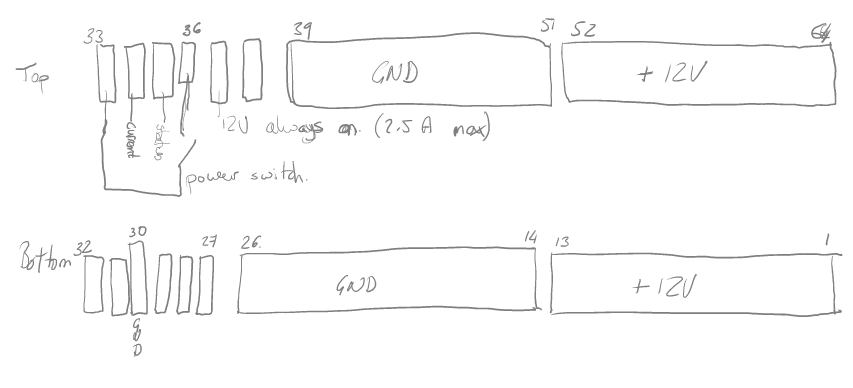 33 36 39 51 52 64
Top
GND
+ 12V
current
status
12V always on. (2.5 A max)
power switch.
Bottom
32 30 27 26. 14 13 1
GND
+ 12V
GND